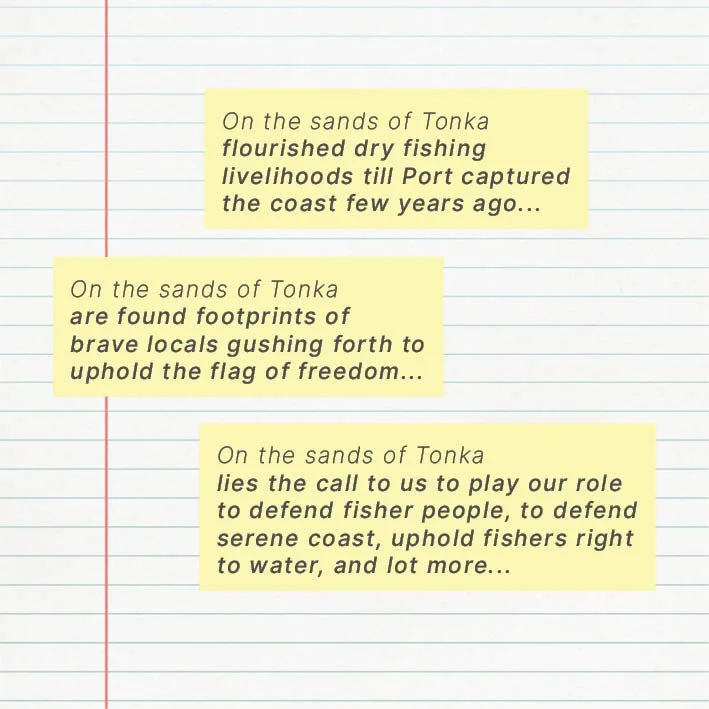 On the sands of Tonka
flourished dry fishing
livelihoods till Port captured
the coast few years ago...
On the sands of Tonka
are found footprints of
brave locals gushing forth to
uphold the flag of freedom...
On the sands of Tonka
lies the call to us to play our role
to defend fisher people, to defend
serene coast, uphold fishers right
to water, and lot more...